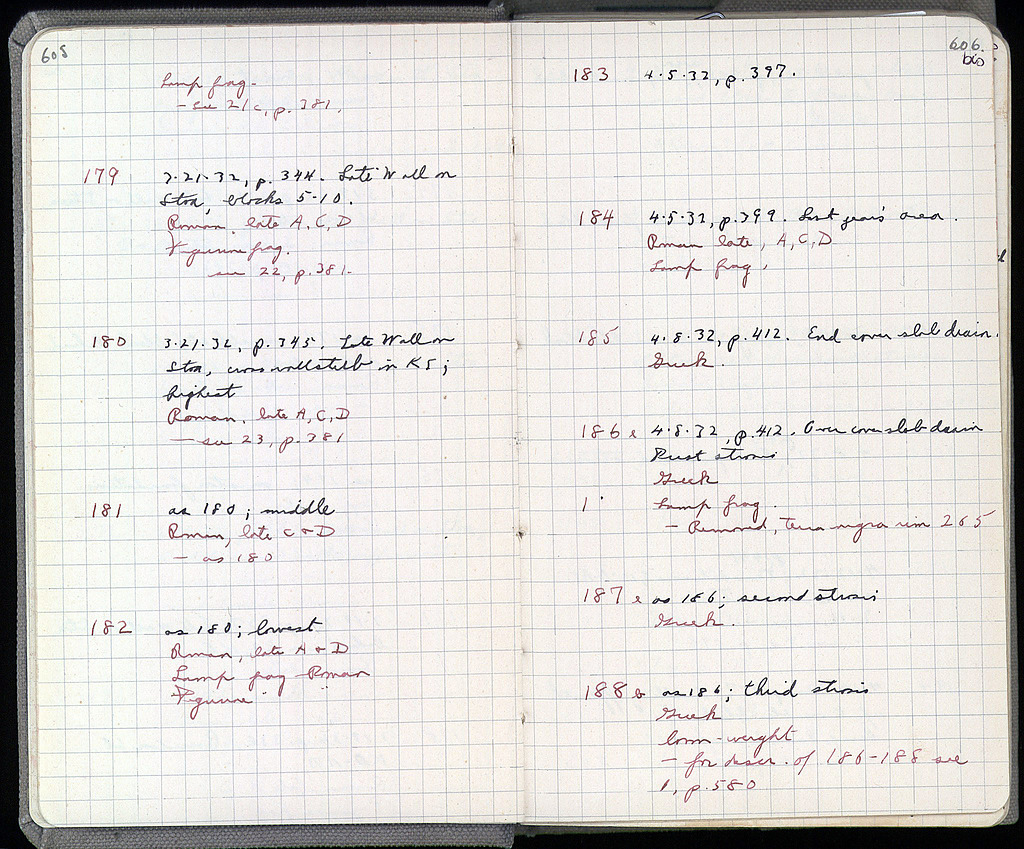 605
Lamp frag.
- see 21c, p. 381.
179 3.21.32, p. 344. Late Wall on
Stoa, blocks 5-10.
Roman, late A, C, D
Figurine frag.
see 22, p. 381.
180 3.21.32, p. 345. Late Wall on
Stoa, cross wall in K5;
highest
Roman, late A, C, D
- see 23, p. 381
181 as 180; middle
Roman, late C + D
- as 180
182 as 180; lowest
Roman, late A + D
Lamp frag Roman
Figurine
606.
bis
183 4.5.32, p. 397.
184 4.5.32, p. 399. Last year's area.
Roman late, A, C, D
Lamp frag.
185 4.8.32, p. 412. End cover slab drain.
Greek.
186 4.8.32, p. 412. Over cover slab drain
First strosis
Greek
1 Lamp frag.
- Removed, terra nigra rim 265
187 as 186; second strosis
Greek.
188 as 186; third strosis
Greek
loom-weight
- for descr. of 186-188 see
1, p. 580